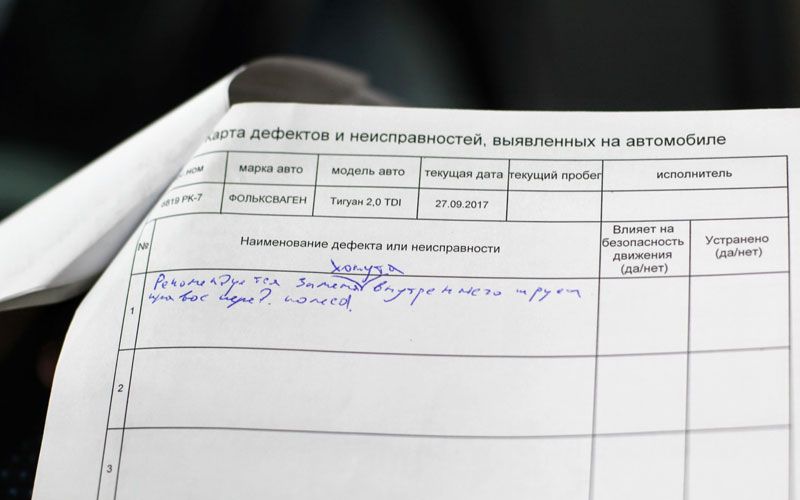 Карта дефектов и неисправностей, выявленных на автомобиле
ном марка авто модель авто текущая дата текущий пробег исполнитель
6819 РК-7 ФОЛЬКСВАГЕН Тигуан 2,0 TDI 27.09.2017
№ Наименование дефекта или неисправности Влияет на безопасность движения (да/нет) Устранено (да/нет)
хомута
1 Рекомендуется замена внутреннего
перед. колесо.
2
3